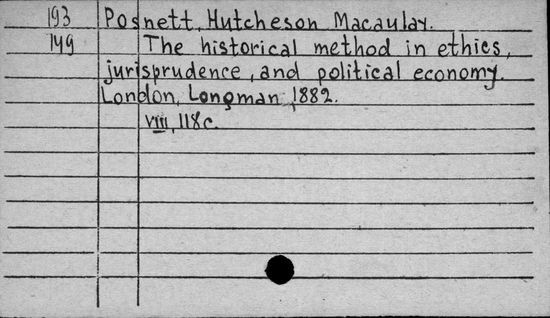 193 Posnett, Hutcheson Macaulay.
149 The historical method in ethics,
jurisprudence, and political economy.
London, Longman, 1882.
viii, 118c.